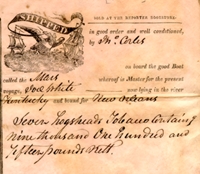 SOLD AT THE REPORTER
SHIPPED
in good order and well conditioned,
by
on board the good Boat
called the Mars
whereof is Master for the present
voyage, Joe White
now lying in the river
Kentucky and bound for New Orleans
Seven Hogsheads Tobacco Containg
nine thousand One hundred and
fifteen pounds Nett